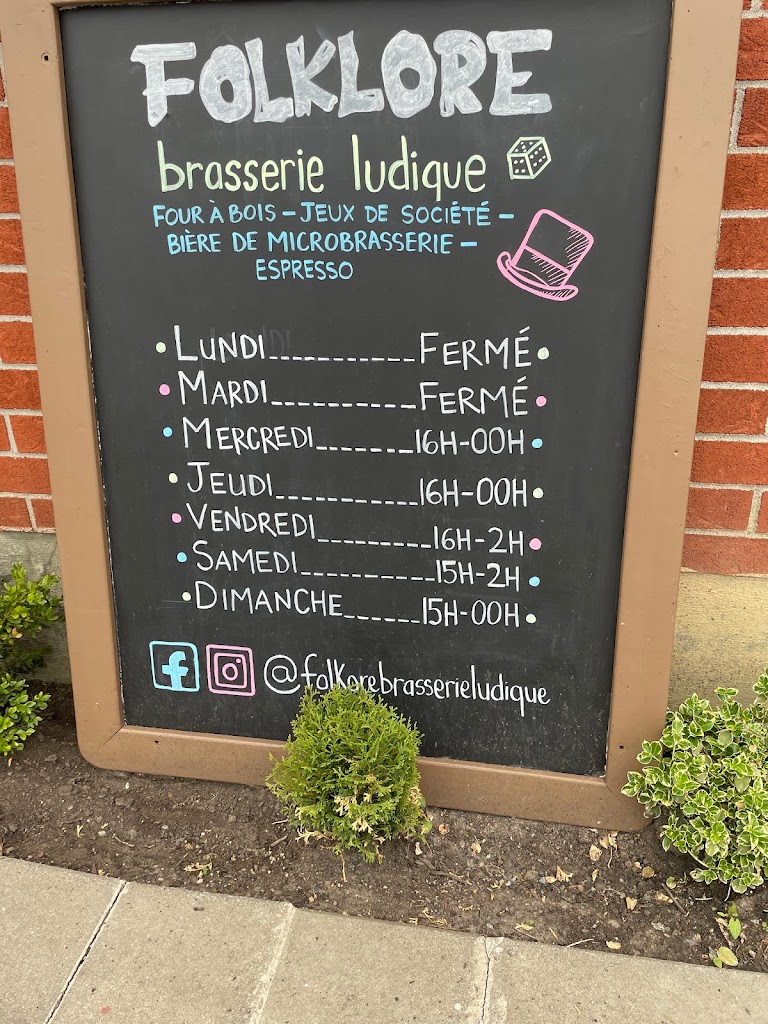 FOLKLORE
brasserie ludique
FOUR À BOIS - JEUX DE SOCIÉTÉ -
BIÈRE DE MICROBRASSERIE -
ESPRESSO
LUNDI___________FERMÉ
MARDI__________FERMÉ
MERCREDI_______16H-00H
JEUDI___________16H-00H
VENDREDI_________16H-2H
SAMEDI__________15H-2H
DIMANCHE______15H-00H
@folkorebrasserieludique